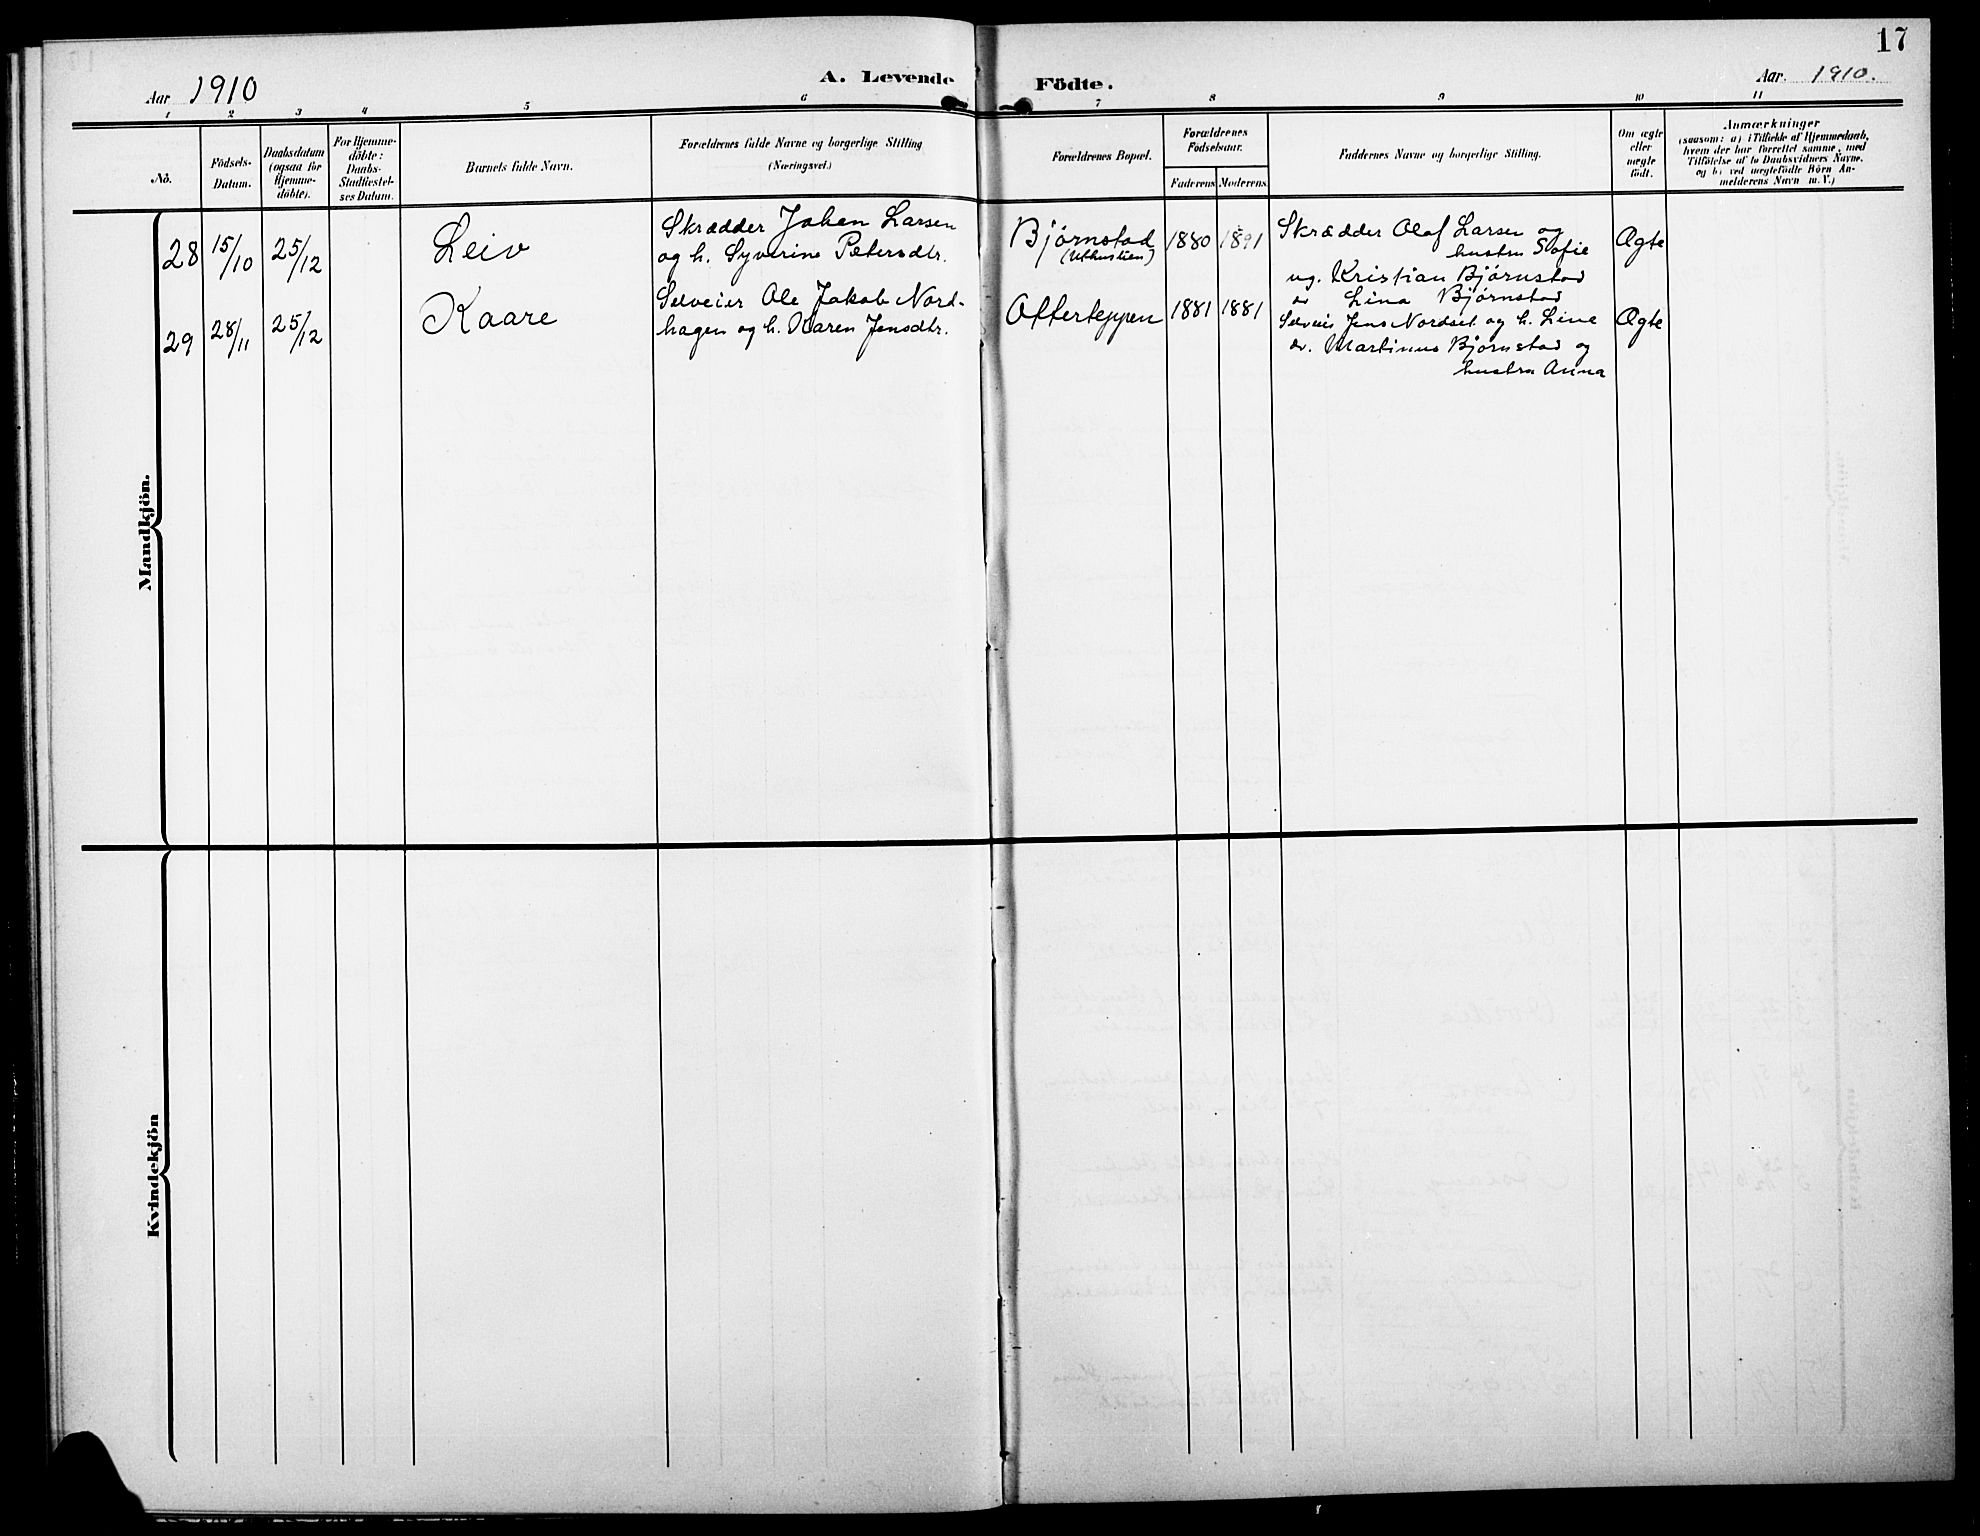 17
Aar 1910
A. Levende Födte.
Aar. 1910.
1 2 3 4 5 6 7 8 9 10 11
No.
Födsels-
Datum.
Daabsdatum
(ogsaa for
Hjemme-
döbte).
For Hjemme-
döbte:
Daabs-
Stadfæstel-
ses Datum.
Barnets fulde Navn.
Forældrenes fulde Navne og borgerlige Stilling
(Næringsvei.)
Forældrenes Bopæl.
Forældrenes
Födselsaar.
Faderens Moderens
Faddernes Navne og borgerlige Stilling.
Om ægte
eller
uægte
födt.
Anmærkninger
(saasom: a) i Tilfælde af Hjemmedaab,
hvem der har forrettet samme, med
Tilföielse af to Daabsvidners Navne,
og b) ved uægtefödte Börn An-
melderens Navn m. V.)
Mandkjön.
28 15/10 25/12 Leiv
Skrædder Johan Larsen
og h. Syverine Petersdtr.
Bjørnstad
1880 1891
Skrædder Olaf Larsen og
hustru Sofie
ug. Kristian Bjørnstad
Lina Bjørnstad
Ægte
29 28/11 25/12 Kaare
Selveier Ole Jakob Nord-
hagen og h. Karen Jensdtr.
Afterteppen
1881 1881
Selveier Jens Nordset og h. Line
Martinus Bjørnstad og
hustru Anna
Ægte
Kvindekjön